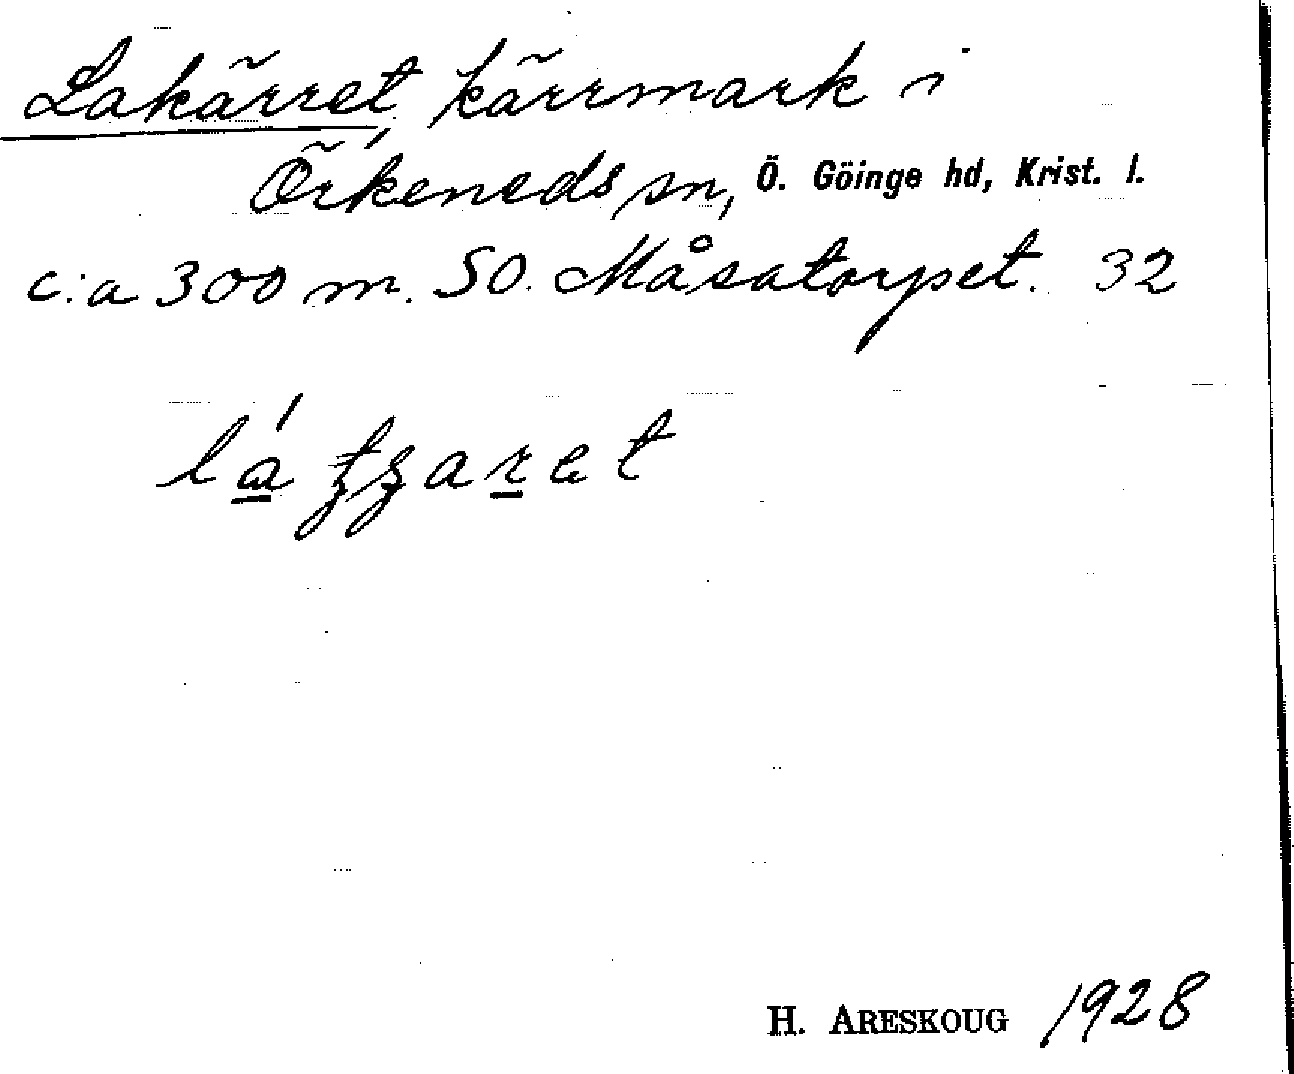 Lakärret, kärrmark i
Örkeneds sn, Ö. Göinge hd, Krist. l.
c:a 300 m. SO. Måsatorpet. 32
H. ARESKOUG 1928